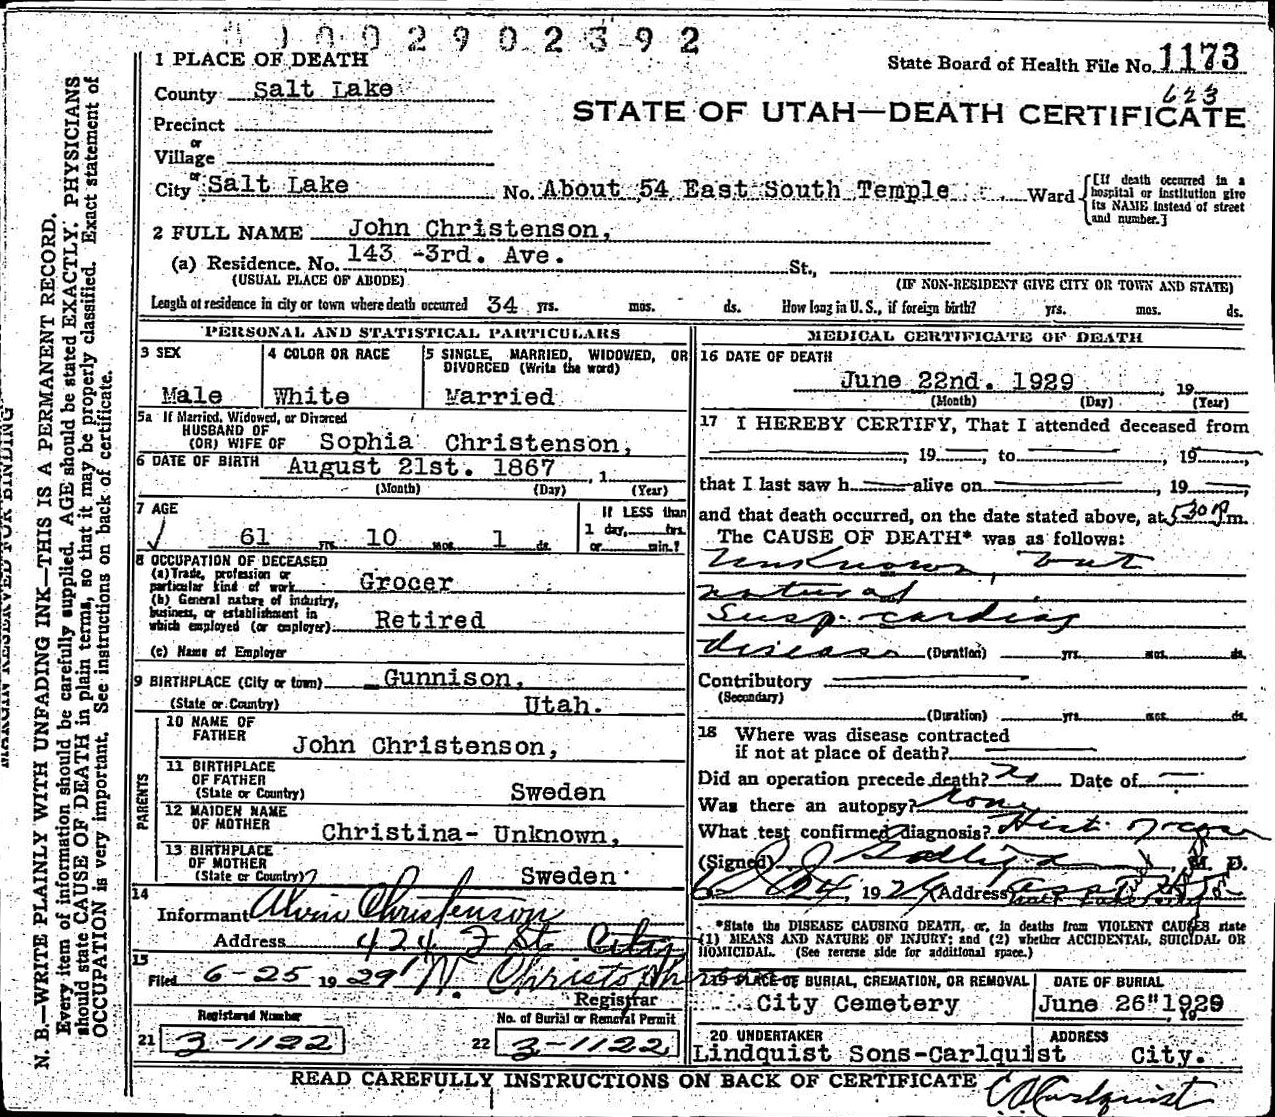 0002902392
1 PLACE OF DEATH
State Board of Health File No. 1173
623
County Salt Lake
STATE OF UTAH—DEATH CERTIFICATE
Precinct
or
Village
or
City Salt Lake No. About 54 East South Temple Ward [If death occurred in a hospital or institution give its NAME instead of street and number.]
2 FULL NAME John Christenson,
(a) Residence. No. 143 -3rd. Ave. St.,
(USUAL PLACE OF ABODE) (IF NON-RESIDENT GIVE CITY OR TOWN AND STATE)
Length of residence in city or town where death occurred 34 yrs. mos. ds. How long in U.S., if foreign birth? yrs. mos. ds.
PERSONAL AND STATISTICAL PARTICULARS
3 SEX
Male
4 COLOR OR RACE
White
5 SINGLE, MARRIED, WIDOWED, OR
DIVORCED (Write the word)
Married
5a If Married, Widowed, or Divorced
HUSBAND OF
(OR) WIFE OF Sophia Christenson,
6 DATE OF BIRTH August 21st. 1867 , 1
(Month) (Day) (Year)
7 AGE
61 yrs. 10 mos. 1 ds.
If LESS than
1 day, hrs.
or min.?
8 OCCUPATION OF DECEASED
(a) Trade, profession or
particular kind of work Grocer
(b) General nature of industry,
business, or establishment in
which employed (or employer) Retired
(c) Name of Employer
9 BIRTHPLACE (City or town) Gunnison,
(State or Country) Utah.
PARENTS
10 NAME OF
FATHER John Christenson,
11 BIRTHPLACE
OF FATHER
(State or Country) Sweden
12 MAIDEN NAME
OF MOTHER Christina- Unknown,
13 BIRTHPLACE
OF MOTHER
(State or Country) Sweden
14
Informant Alvin Christenson
Address 424 2 St. City
15
Filed 6-25 1929 W. Christoph
Registrar
Registered Number
21 3-1122
No. of Burial or Removal Permit
22 3-1122
MEDICAL CERTIFICATE OF DEATH
16 DATE OF DEATH
June 22nd. 1929 , 19
(Month) (Day) (Year)
17 I HEREBY CERTIFY, That I attended deceased from
, 19 , to , 19 ,
that I last saw h alive on , 19 ,
and that death occurred, on the date stated above, at 5 30 P.m.
The CAUSE OF DEATH* was as follows:
Unknown, but
natural
Susp. cardiac
disease (Duration) yrs. mos. ds.
Contributory
(Secondary)
(Duration) yrs. mos. ds.
18 Where was disease contracted
if not at place of death?
Did an operation precede death? No Date of
Was there an autopsy? None
What test confirmed diagnosis? Hist.
(Signed) M. D.
6 24, 1929 (Address)
*State the DISEASE CAUSING DEATH, or, in deaths from VIOLENT CAUSES state
(1) MEANS AND NATURE OF INJURY; and (2) whether ACCIDENTAL, SUICIDAL OR
HOMICIDAL. (See reverse side for additional space.)
19 PLACE OF BURIAL, CREMATION, OR REMOVAL
City Cemetery
DATE OF BURIAL
June 26" 1929
20 UNDERTAKER
Lindquist Sons-Carlquist
ADDRESS
City.
READ CAREFULLY INSTRUCTIONS ON BACK OF CERTIFICATE
C A Carlquist
MARGIN RESERVED FOR BINDING
N. B.—WRITE PLAINLY WITH UNFADING INK—THIS IS A PERMANENT RECORD.
Every item of information should be carefully supplied. AGE should be stated EXACTLY. PHYSICIANS
should state CAUSE OF DEATH in plain terms, so that it may be properly classified. Exact statement of
OCCUPATION is very important. See instructions on back of certificate.